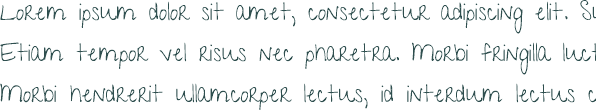 Lorem ipsum dolor sit amet, consectetur adipiscing elit. Su
Etiam tempor vel risus nec pharetra. Morbi fringilla luct
Morbi hendrerit ullamcorper lectus, id interdum lectus c